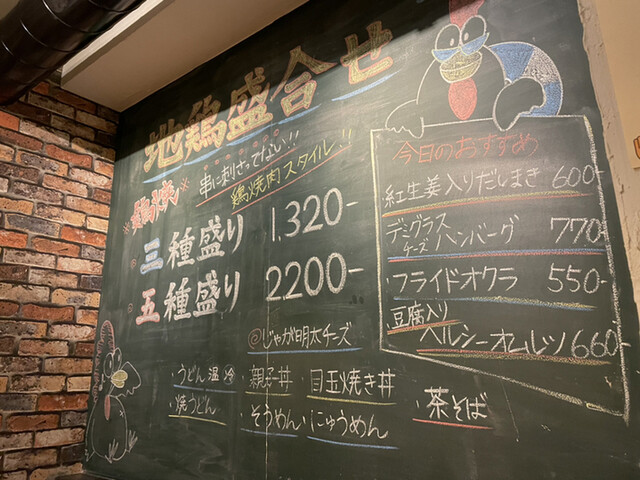 地鶏盛合せ
串に刺さってない!!
※鶏焼※ 鶏焼肉スタイル!!
・三種盛り 1,320-
・五種盛り 2200-
今日のおすすめ
紅生姜入りだしまき 600-
デミグラスチーズハンバーグ 770-
フライドオクラ 550-
豆腐入り
ヘルシーオムレツ 660-
◎じゃが明太チーズ
・うどん温冷 ・親子丼 ・目玉焼き丼
・焼うどん ・そうめん ・にゅうめん ・茶そば